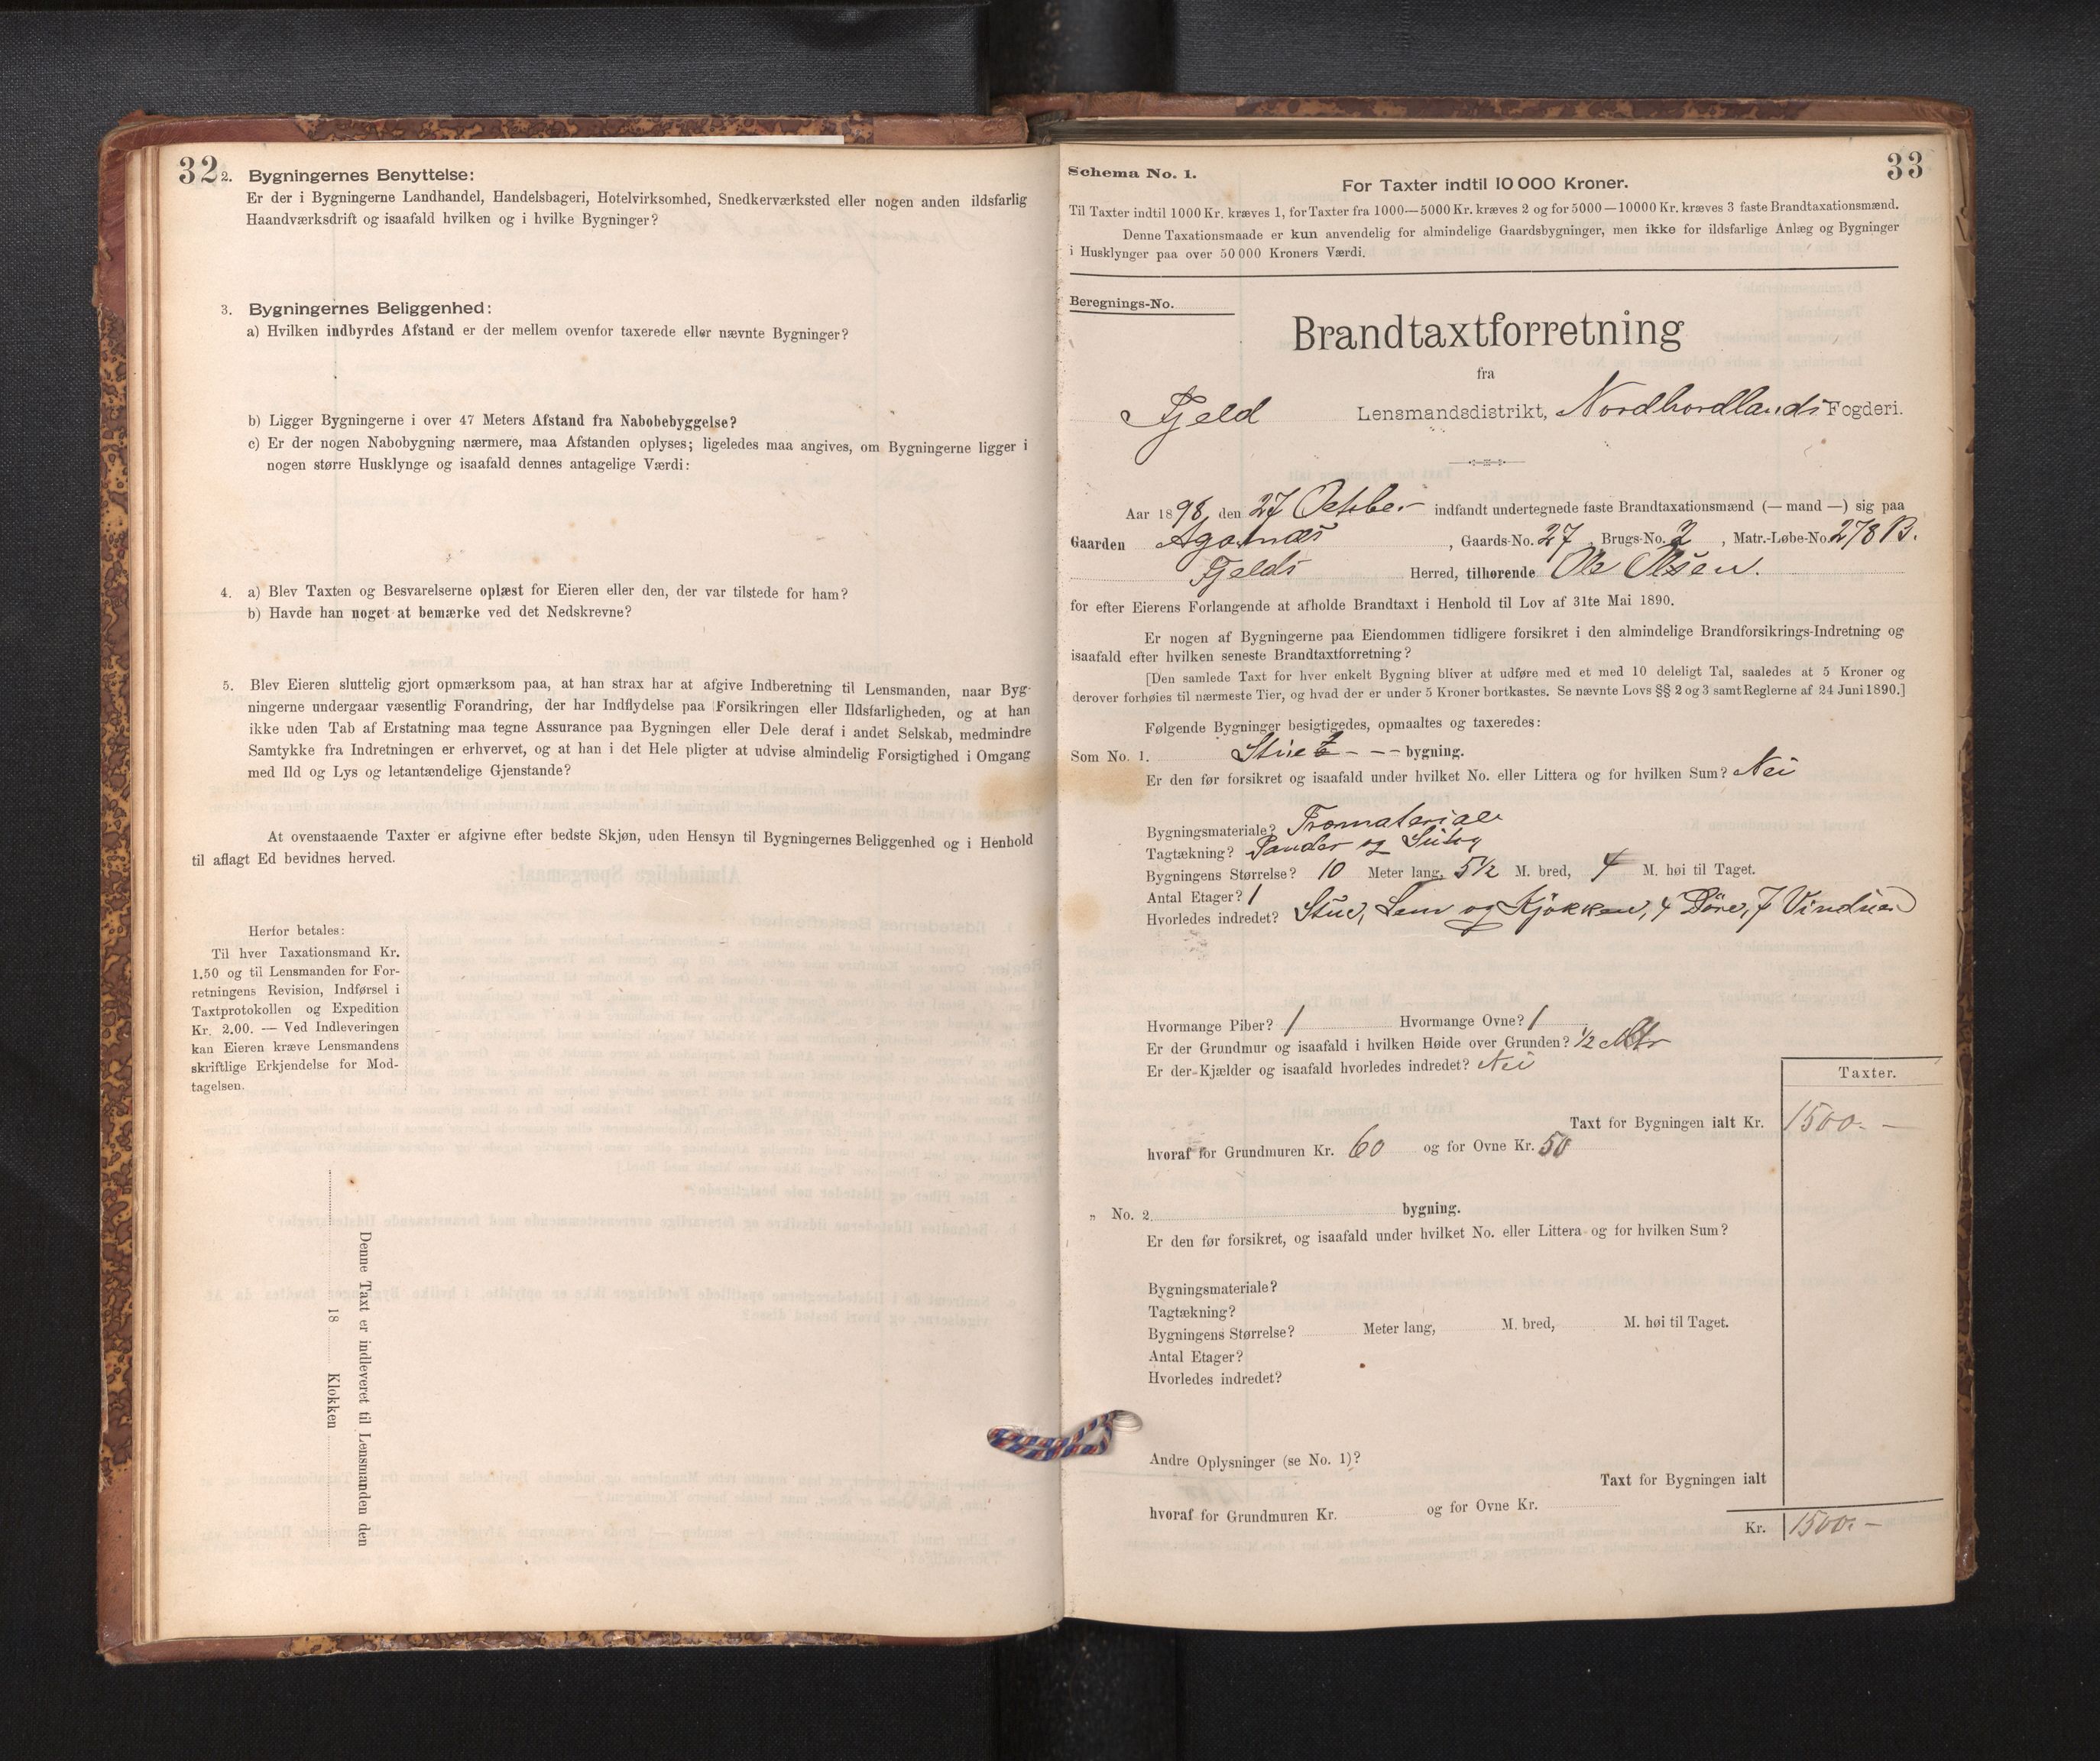 32
2. Bygningernes Benyttelse:
Er der i Bygningerne Landhandel, Handelsbageri, Hotelvirksomhed, Snedkerværksted eller nogen anden ildsfarlig
Haandværksdrift og isaafald hvilken og i hvilke Bygninger?
3. Bygningernes Beliggenhed:
a) Hvilken indbyrdes Afstand er der mellem ovenfor taxerede eller nævnte Bygninger?
b) Ligger Bygningerne i over 47 Meters Afstand fra Nabobebyggelse?
c) Er der nogen Nabobygning nærmere, maa Afstanden oplyses; ligeledes maa angives, om Bygningerne ligger i
nogen større Husklynge og isaafald dennes antagelige Værdi:
4. a) Blev Taxten og Besvarelserne oplæst for Eieren eller den, der var tilstede for ham?
b) Havde han noget at bemærke ved det Nedskrevne?
5. Blev Eieren sluttelig gjort opmærksom paa, at han strax har at afgive Indberetning til Lensmanden, naar Byg-
ningerne undergaar væsentlig Forandring, der har Indflydelse paa Forsikringen eller Ildsfarligheden, og at han
ikke uden Tab af Erstatning maa tegne Assurance paa Bygningen eller Dele deraf i andet Selskab, medmindre
Samtykke fra Indretningen er erhvervet, og at han i det Hele pligter at udvise almindelig Forsigtighed i Omgang
med Ild og Lys og letantændelige Gjenstande?
At ovenstaaende Taxter er afgivne efter bedste Skjøn, uden Hensyn til Bygningernes Beliggenhed og i Henhold
til aflagt Ed bevidnes herved.
Herfor betales:
Til hver Taxationsmand Kr.
1.50 og til Lensmanden for For-
retningens Revision, Indførsel i
Taxtprotokollen og Expedition
Kr. 2.00. — Ved Indleveringen
kan Eieren kræve Lensmandens
skriftlige Erkjendelse for Mod-
tagelsen.
Denne Taxt er indleveret til Lensmanden den
18 Klokken
33
Schema No. 1.
For Taxter indtil 10 000 Kroner.
Til Taxter indtil 1000 Kr. kræves 1, for Taxter fra 1000—5000 Kr. kræves 2 og for 5000—10000 Kr. kræves 3 faste Brandtaxationsmænd.
Denne Taxationsmaade er kun anvendelig for almindelige Gaardsbygninger, men ikke for ildsfarlige Anlæg og Bygninger
i Husklynger paa over 50 000 Kroners Værdi.
Beregnings-No.
Brandtaxtforretning
fra
Fjeld Lensmandsdistrikt, Nordhordlands Fogderi.
Aar 1898, den 27 October indfandt undertegnede faste Brandtaxationsmænd (— mand —) sig paa
Gaarden Agotnæs, Gaards-No. 27, Brugs-No. 2, Matr.-Løbe-No. 278 B.
Fjelds Herred, tilhørende Ole Olsen.
for efter Eierens Forlangende at afholde Brandtaxt i Henhold til Lov af 31te Mai 1890.
Er nogen af Bygningerne paa Eiendommen tidligere forsikret i den almindelige Brandforsikrings-Indretning og
isaafald efter hvilken seneste Brandtaxtforretning?
[Den samlede Taxt for hver enkelt Bygning bliver at udføre med et med 10 deleligt Tal, saaledes at 5 Kroner og
derover forhøies til nærmeste Tier, og hvad der er under 5 Kroner bortkastes. Se nævnte Lovs §§ 2 og 3 samt Reglerne af 24 Juni 1890.]
Følgende Bygninger besigtigedes, opmaaltes og taxeredes:
Som No. 1. Stue - - - bygning.
Er den før forsikret og isaafald under hvilket No. eller Littera og for hvilken Sum? Nei
Bygningsmateriale? Træmateriale
Tagtækning? Pander og
Bygningens Størrelse? 10 Meter lang, 5½ M. bred, 4 M. høi til Taget.
Antal Etager? 1
Hvorledes indredet? Stue, Lem og Kjøkken, 4 Döre, 7 Vinduer
Hvormange Piber? 1 Hvormange Ovne? 1
Er der Grundmur og isaafald i hvilken Høide over Grunden? ½ Mtr
Er der Kjælder og isaafald hvorledes indredet? Nei
Taxter.
Taxt for Bygningen ialt Kr. 1500. -
hvoraf for Grundmuren Kr. 60 og for Ovne Kr. 50
„ No. 2. bygning.
Er den før forsikret, og isaafald under hvilket No. eller Littera og for hvilken Sum?
Bygningsmateriale?
Tagtækning?
Bygningens Størrelse? Meter lang, M. bred, M. høi til Taget.
Antal Etager?
Hvorledes indredet?
Andre Oplysninger (se No. 1)?
Taxt for Bygningen ialt
hvoraf for Grundmuren Kr. og for Ovne Kr.
Kr. 1500. -